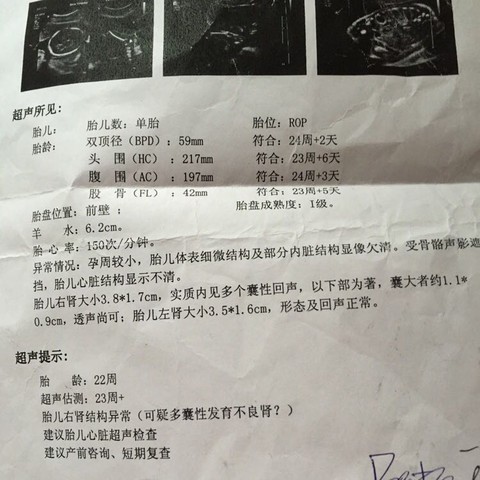 超声所见：
胎儿： 胎儿数：单胎 胎位：ROP
胎龄： 双顶径（BPD）：59mm 符合：24周+2天
头 围（HC）：217mm 符合：23周+6天
腹 围（AC）：197mm 符合：24周+3天
股 骨（FL）：42mm 符合：23周+5天
胎盘位置：前壁： 胎盘成熟度：I级。
羊 水：6.2cm。
胎 心 率：150次/分钟。
异常情况：孕周较小，胎儿体表细微结构及部分内脏结构显像欠清。受骨骼声影遮
挡，胎儿心脏结构显示不清。
胎儿右肾大小3.8*1.7cm，实质内见多个囊性回声，以下部为著，囊大者约1.1*
0.9cm，透声尚可；胎儿左肾大小3.5*1.6cm，形态及回声正常。
超声提示：
胎 龄：22周
超声估测：23周+
胎儿右肾结构异常（可疑多囊性发育不良肾？）
建议胎儿心脏超声检查
建议产前咨询、短期复查